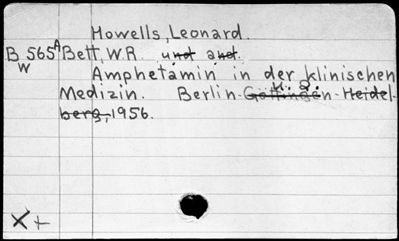 Howells, Leonard.
B 565A Bett, W.R. und and.
W
Amphetamin in der klinischen
Medizin. Berlin-Göttingen-Heidel-
berg, 1956.
X +